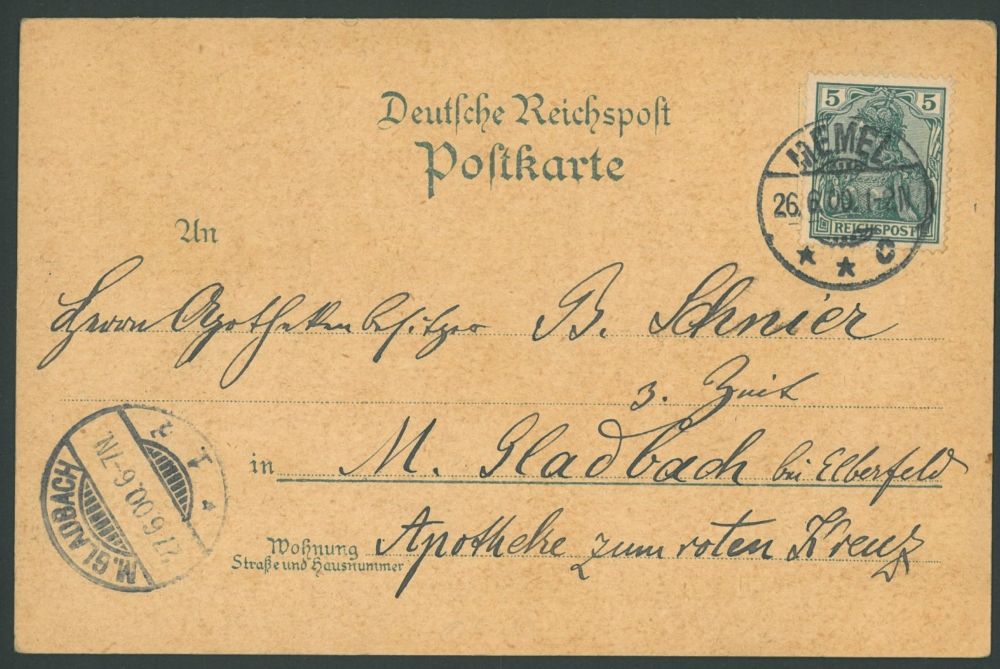 Deutsche Reichspost
Postkarte
5 5
REICHSPOST
MEMEL
26.6.00. 1-2N.
* * C
An
Herrn Apothekenbesitzer B. Schnier
z. Zeit
in M. Gladbach bei Elberfeld
Wohnung Apotheke zum roten Kreuz
Straße und Hausnummer
M. GLADBACH
27.6.00. 6-7N.